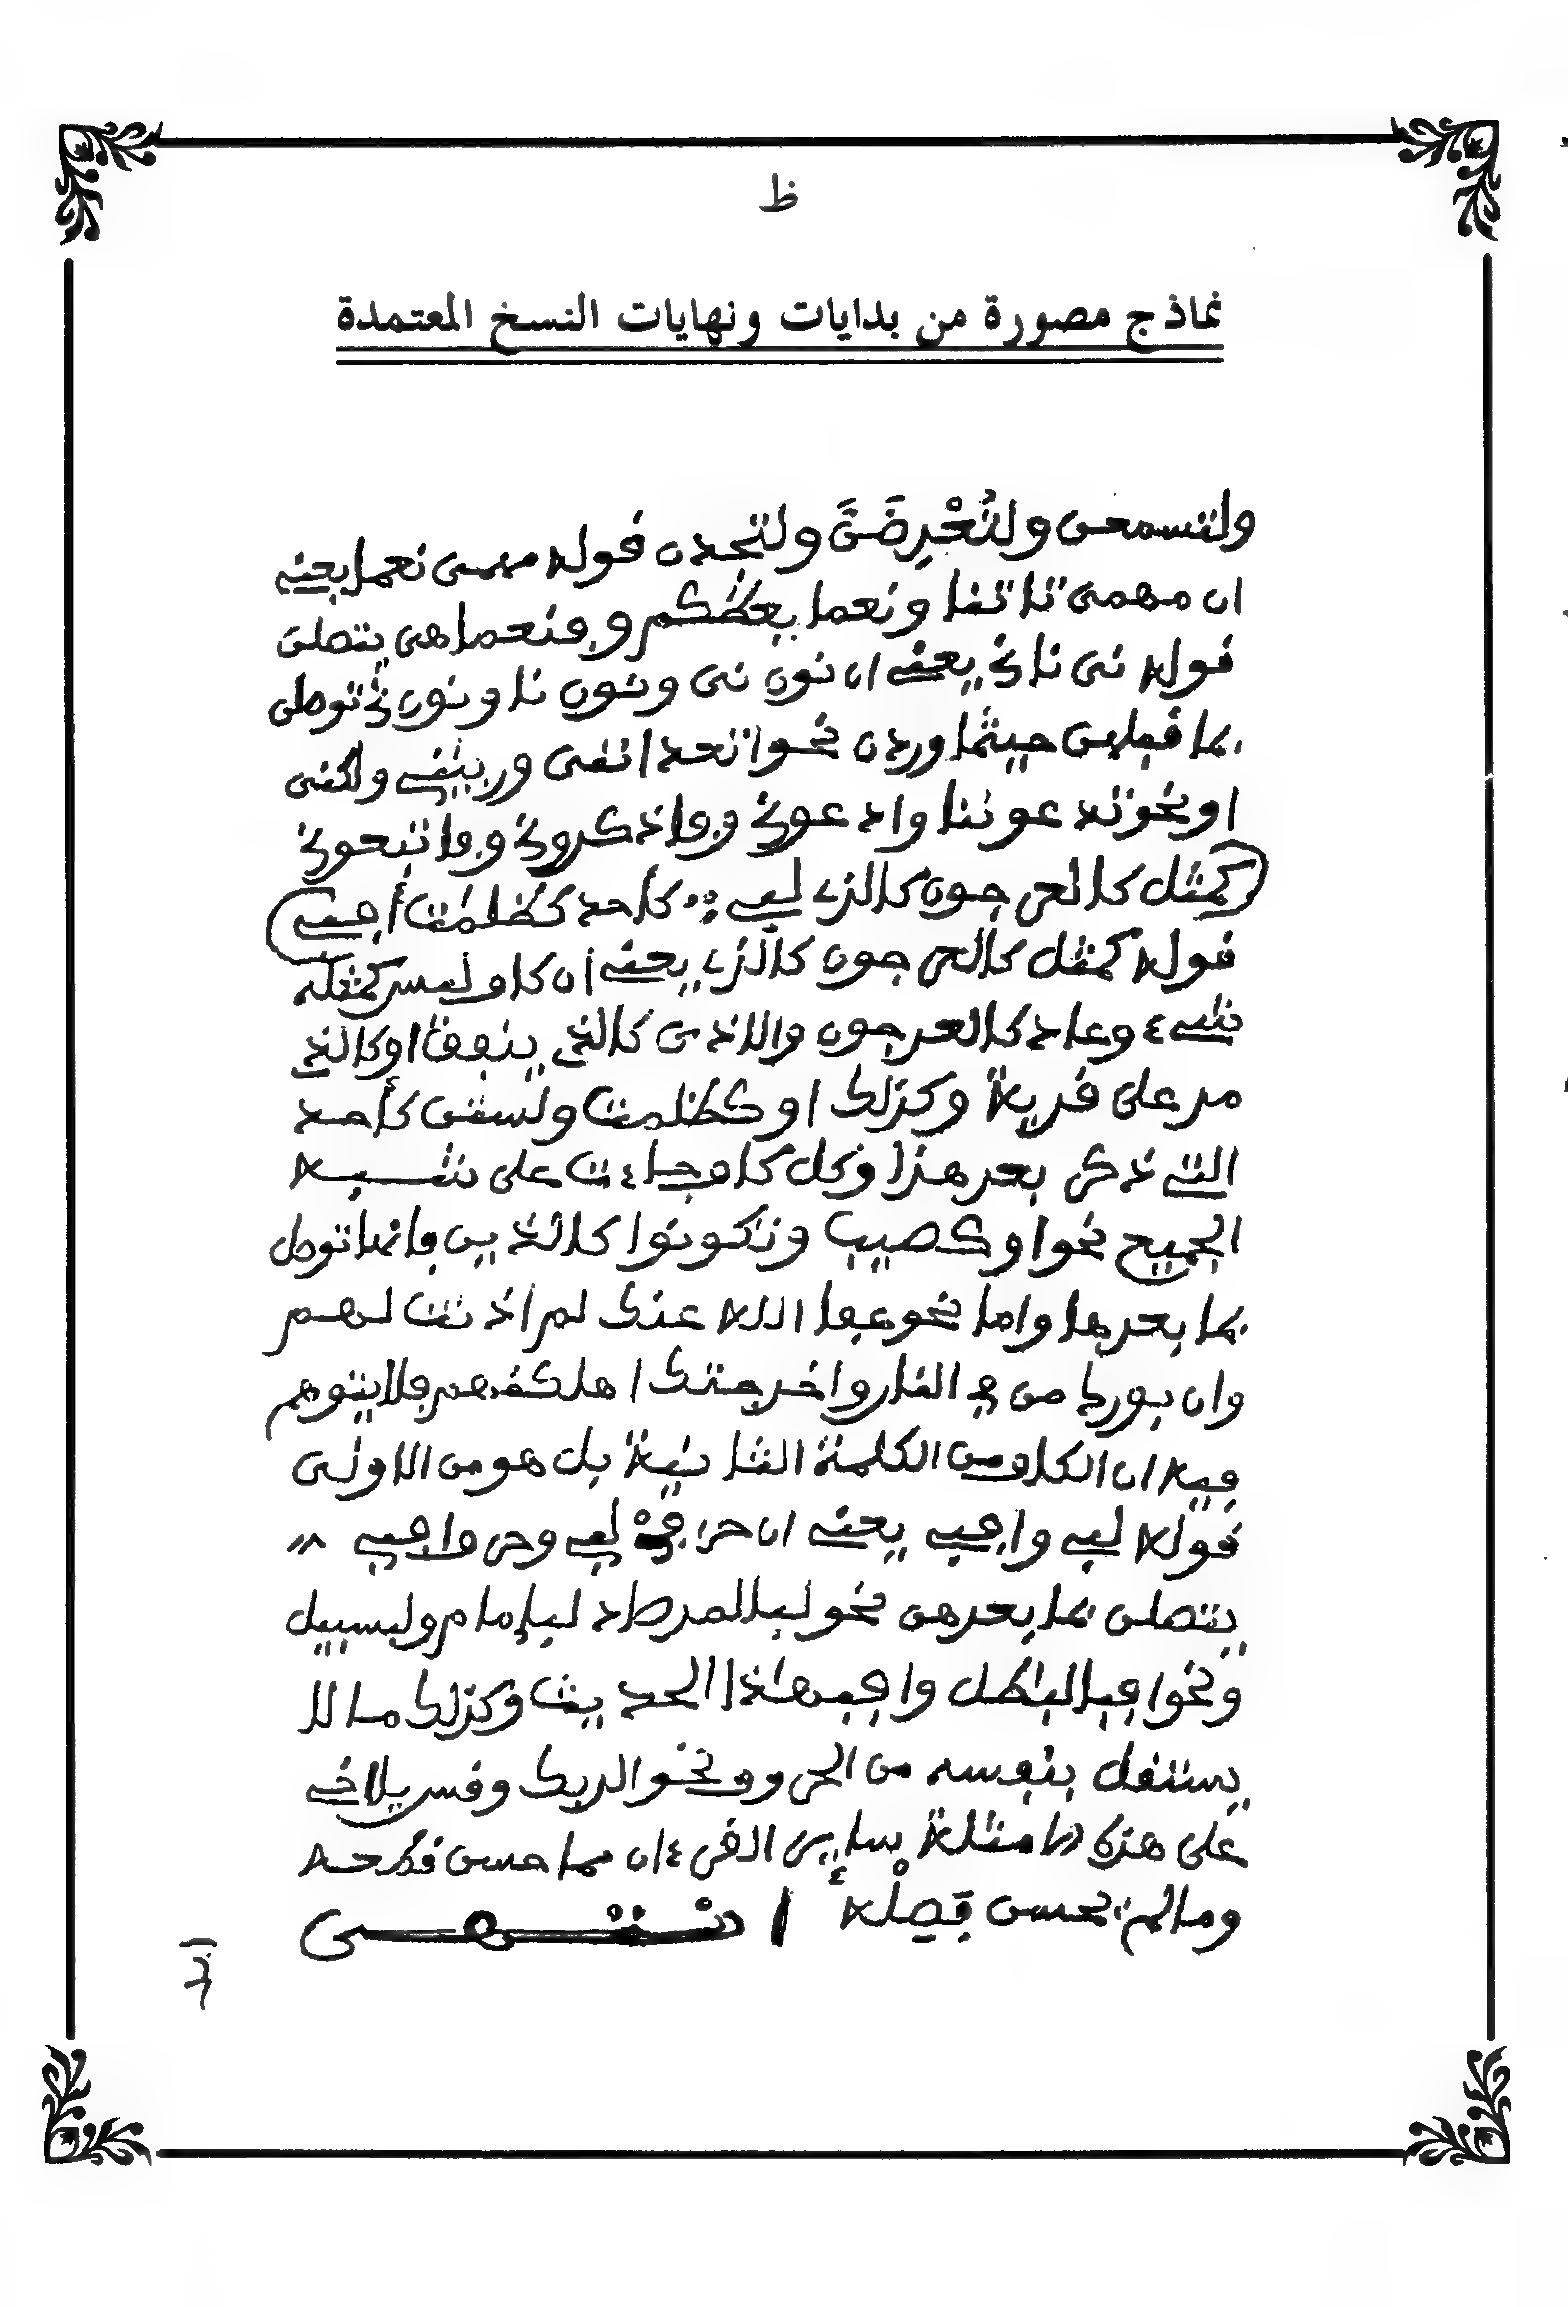 ظ
نماذج مصورة من بدايات ونهايات النسخ المعتمدة
ولتسمعن ولتُحْرِضَنَّ ولتجدن قوله مهمى نعما يعني
ان مهمى تاتنا ونعما يعظكم وفنعما هي يتصلن
قوله نى نا نِي يعني ان نون نى ونون نا ونون نِي توصلن
بما قبلهن حيثما وردن نحو اتعدانني وربيني ولكني
او نحو تدعوننا وادعوني وفاذكروني وفاتبعوني
كمثل كالعرجون كالذي لبي كأحد كظلمت أفبي
قوله كمثل كالعرجون كالذي يعني أن كاف ليس كمثله
شيء وعاد كالعرجون والاذى كالذي ينفق او كالذي
مر على قرية وكذلك او كظلمت ولستن كأحد
التي ذكر بعد هذا وكل كاف جاءت على شبه
الجميع نحو او كصيب وتكونوا كالذين فانها توصل
بما بعدها واما نحو عفا الله عنك لم اذنت لهم
وان بورك من في النار واخرجتك اهلكنهم فلا يتوهم
فيه ان الكاف من الكلمة الثانية بل هو من الاولى
قوله لبي وافبي يعني ان حرفي لبي وحرفا افبي
يتصلن بما بعدهن نحو لبالمرصاد لبإمام ولبسبيل
ونحو افبالبطل وافبهذا الحديث وكذلك ما لا
يستقل بنفسه من الحروف نحو الربك وقس يلاخي
على هذه الامثلة ساير القرءان مما حسن قطعه
وما لم يحسن فصله انتهى